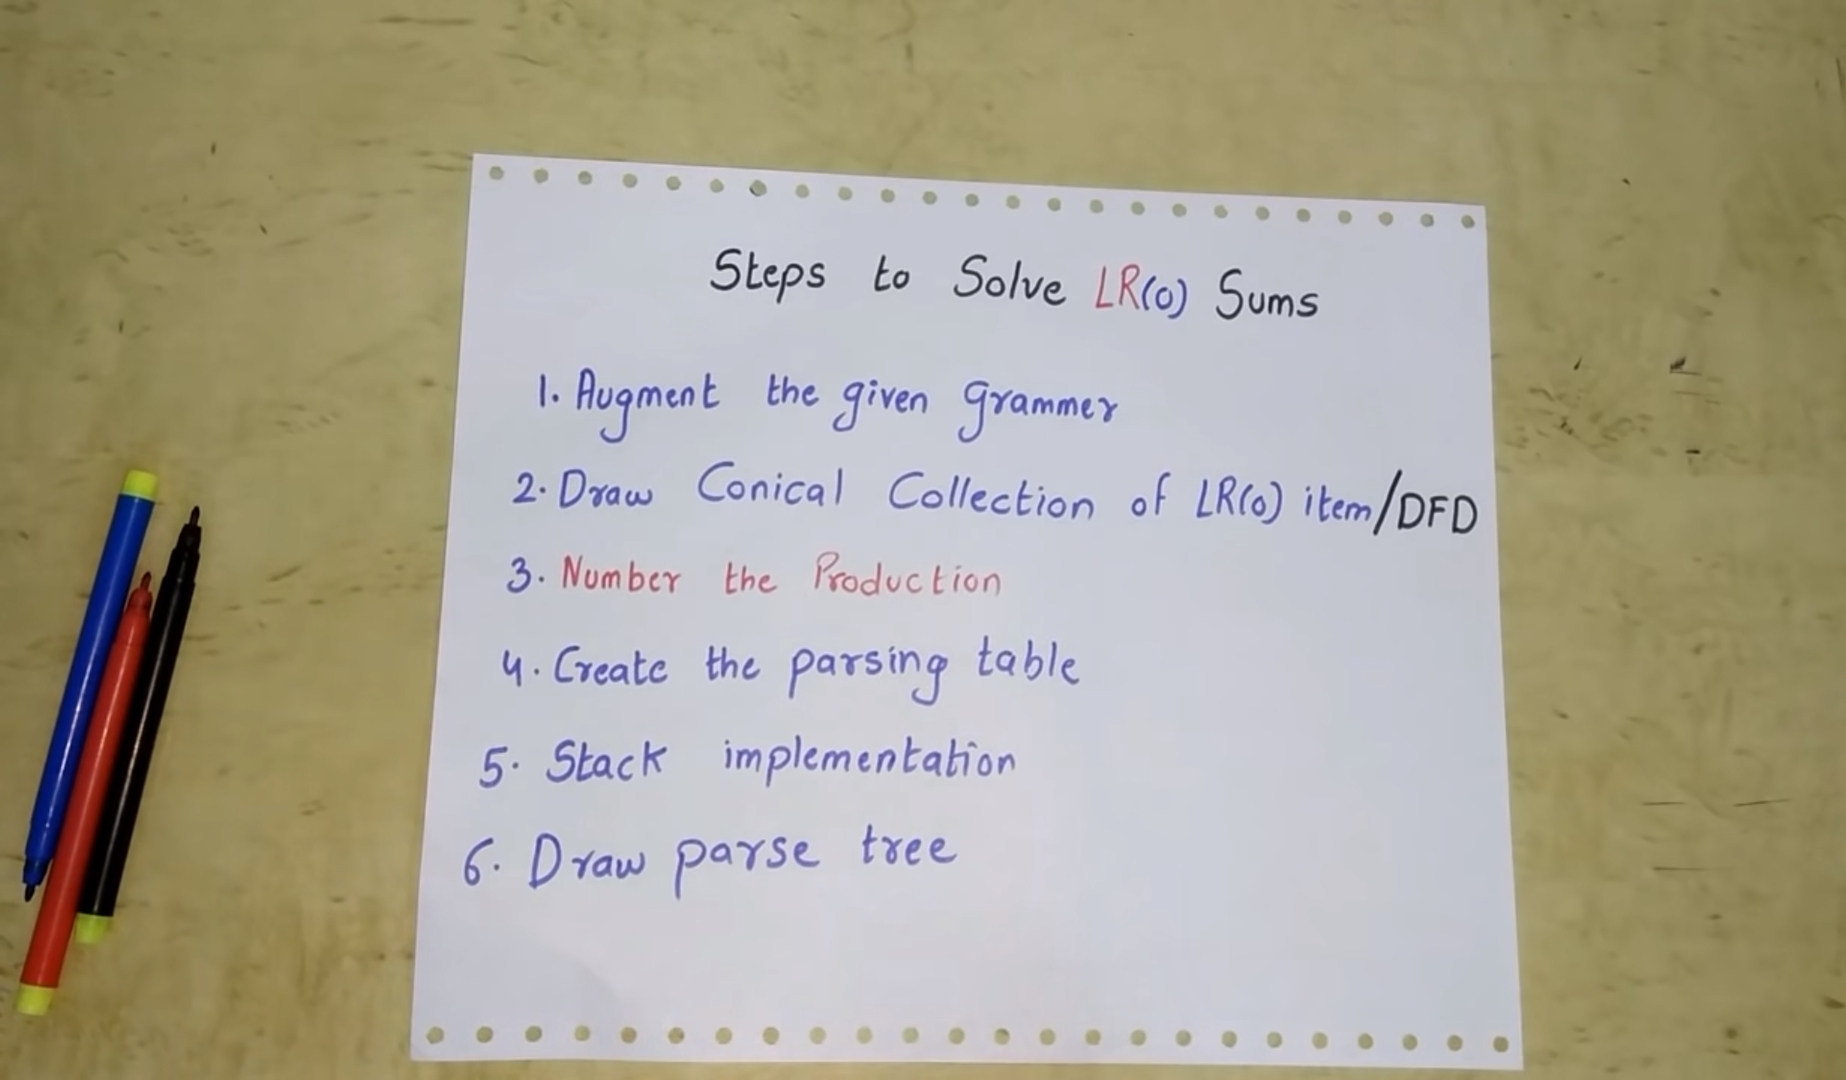 Steps to Solve LR(0) Sums
1. Augment the given grammer
2. Draw Conical Collection of LR(0) item/DFD
3. Number the Production
4. Create the parsing table
5. Stack implementation
6. Draw parse tree